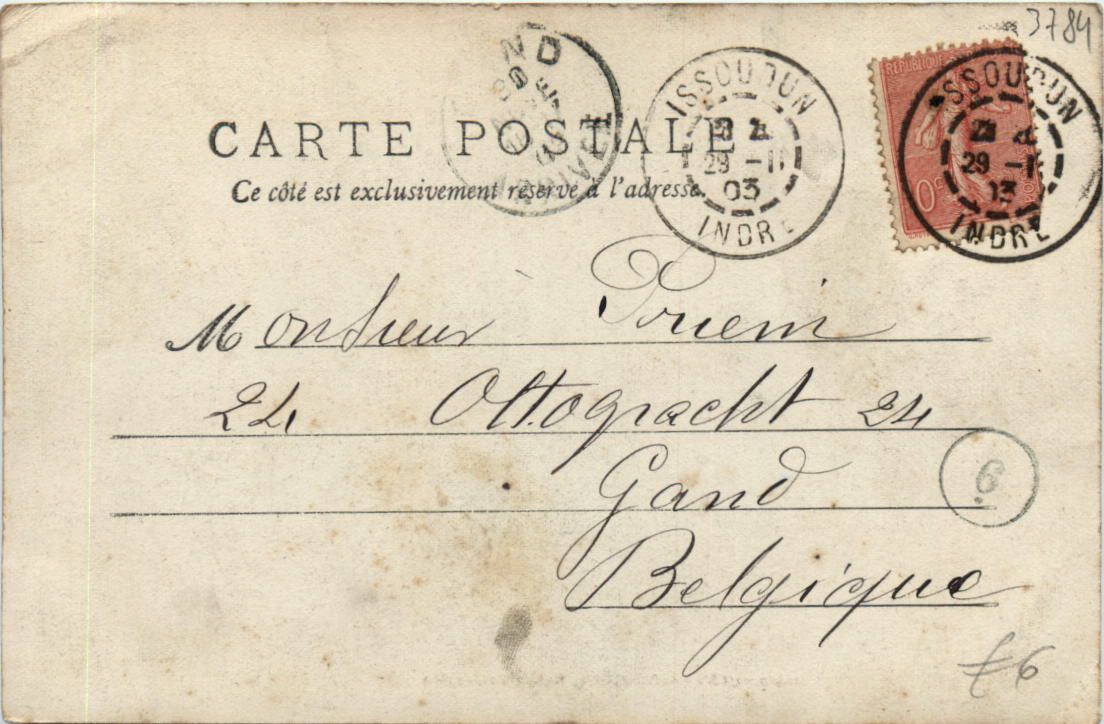 3784
CARTE POSTALE
Ce côté est exclusivement réservé à l'adresse.
ISSOUDUN
29 - 11
03
INDRE
REPUBLIQUE
ISSOUDUN
29 - 11
03
INDRE
Monsieur Priem
24 Ottogracht 24
Gand
6
Belgique
£6